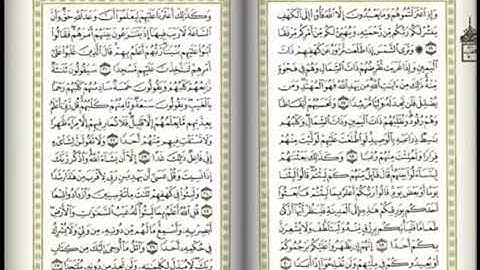 وَإِذِ ٱعْتَزَلْتُمُوهُمْ وَمَا يَعْبُدُونَ إِلَّا ٱللَّهَ فَأْوُۥٓا۟ إِلَى ٱلْكَهْفِ
يَنشُرْ لَكُمْ رَبُّكُم مِّن رَّحْمَتِهِۦ وَيُهَيِّئْ لَكُم مِّنْ أَمْرِكُم مِّرْفَقًا
﴿١٦﴾ ۞ وَتَرَى ٱلشَّمْسَ إِذَا طَلَعَت تَّزَٰوَرُ عَن كَهْفِهِمْ ذَاتَ
ٱلْيَمِينِ وَإِذَا غَرَبَت تَّقْرِضُهُمْ ذَاتَ ٱلشِّمَالِ وَهُمْ فِى فَجْوَةٍ
مِّنْهُ ذَٰلِكَ مِنْ ءَايَٰتِ ٱللَّهِ مَن يَهْدِ ٱللَّهُ فَهُوَ ٱلْمُهْتَدِ وَمَن
يُضْلِلْ فَلَن تَجِدَ لَهُۥ وَلِيًّا مُّرْشِدًا ﴿١٧﴾ وَتَحْسَبُهُمْ أَيْقَاظًا
وَهُمْ رُقُودٌ وَنُقَلِّبُهُمْ ذَاتَ ٱلْيَمِينِ وَذَاتَ ٱلشِّمَالِ وَكَلْبُهُم
بَٰسِطٌ ذِرَاعَيْهِ بِٱلْوَصِيدِ لَوِ ٱطَّلَعْتَ عَلَيْهِمْ لَوَلَّيْتَ مِنْهُمْ
فِرَارًا وَلَمُلِئْتَ مِنْهُمْ رُعْبًا ﴿١٨﴾ وَكَذَٰلِكَ بَعَثْنَٰهُمْ
لِيَتَسَآءَلُوا۟ بَيْنَهُمْ قَالَ قَآئِلٌ مِّنْهُمْ كَمْ لَبِثْتُمْ قَالُوا۟ لَبِثْنَا
يَوْمًا أَوْ بَعْضَ يَوْمٍ قَالُوا۟ رَبُّكُمْ أَعْلَمُ بِمَا لَبِثْتُمْ فَٱبْعَثُوٓا۟
أَحَدَكُم بِوَرِقِكُمْ هَٰذِهِۦٓ إِلَى ٱلْمَدِينَةِ فَلْيَنظُرْ أَيُّهَآ أَزْكَىٰ
طَعَامًا فَلْيَأْتِكُم بِرِزْقٍ مِّنْهُ وَلْيَتَلَطَّفْ وَلَا يُشْعِرَنَّ
بِكُمْ أَحَدًا ﴿١٩﴾ إِنَّهُمْ إِن يَظْهَرُوا۟ عَلَيْكُمْ يَرْجُمُوكُمْ
أَوْ يُعِيدُوكُمْ فِى مِلَّتِهِمْ وَلَن تُفْلِحُوٓا۟ إِذًا أَبَدًا ﴿٢٠﴾
وَكَذَٰلِكَ أَعْثَرْنَا عَلَيْهِمْ لِيَعْلَمُوٓا۟ أَنَّ وَعْدَ ٱللَّهِ حَقٌّ وَأَنَّ
ٱلسَّاعَةَ لَا رَيْبَ فِيهَآ إِذْ يَتَنَٰزَعُونَ بَيْنَهُمْ أَمْرَهُمْ فَقَالُوا۟
ٱبْنُوا۟ عَلَيْهِم بُنْيَٰنًا رَّبُّهُمْ أَعْلَمُ بِهِمْ قَالَ ٱلَّذِينَ غَلَبُوا۟ عَلَىٰٓ
أَمْرِهِمْ لَنَتَّخِذَنَّ عَلَيْهِم مَّسْجِدًا ﴿٢١﴾ سَيَقُولُونَ ثَلَٰثَةٌ
رَّابِعُهُمْ كَلْبُهُمْ وَيَقُولُونَ خَمْسَةٌ سَادِسُهُمْ كَلْبُهُمْ رَجْمًۢا
بِٱلْغَيْبِ وَيَقُولُونَ سَبْعَةٌ وَثَامِنُهُمْ كَلْبُهُمْ قُل رَّبِّىٓ أَعْلَمُ
بِعِدَّتِهِم مَّا يَعْلَمُهُمْ إِلَّا قَلِيلٌ فَلَا تُمَارِ فِيهِمْ إِلَّا مِرَآءً ظَٰهِرًا
وَلَا تَسْتَفْتِ فِيهِم مِّنْهُمْ أَحَدًا ﴿٢٢﴾ وَلَا تَقُولَنَّ لِشَا۟ىْءٍ
إِنِّى فَاعِلٌ ذَٰلِكَ غَدًا ﴿٢٣﴾ إِلَّآ أَن يَشَآءَ ٱللَّهُ وَٱذْكُر رَّبَّكَ
إِذَا نَسِيتَ وَقُلْ عَسَىٰٓ أَن يَهْدِيَنِ رَبِّى لِأَقْرَبَ مِنْ هَٰذَا رَشَدًا
﴿٢٤﴾ وَلَبِثُوا۟ فِى كَهْفِهِمْ ثَلَٰثَ مِا۟ئَةٍ سِنِينَ وَٱزْدَادُوا۟ تِسْعًا
﴿٢٥﴾ قُلِ ٱللَّهُ أَعْلَمُ بِمَا لَبِثُوا۟ لَهُۥ غَيْبُ ٱلسَّمَٰوَٰتِ وَٱلْأَرْضِ
أَبْصِرْ بِهِۦ وَأَسْمِعْ مَا لَهُم مِّن دُونِهِۦ مِن وَلِىٍّ وَلَا يُشْرِكُ
فِى حُكْمِهِۦٓ أَحَدًا ﴿٢٦﴾ وَٱتْلُ مَآ أُوحِىَ إِلَيْكَ مِن كِتَابِ
رَبِّكَ لَا مُبَدِّلَ لِكَلِمَٰتِهِۦ وَلَن تَجِدَ مِن دُونِهِۦ مُلْتَحَدًا ﴿٢٧﴾